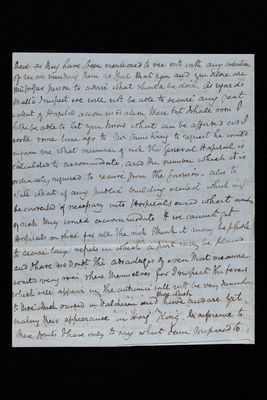 these as they have been mentioned to me not with any intention
of recommending them as I feel that you and you alone are
the proper person to advise what should be done. As regards
Small's I suspect we will not be able to secure any great
extent of Hospital accommodation there but I shall soon
be able to let you know what can be afforded as I
wrote some time ago to Mr Canning to request he would
inform me what number of sick the general Hospital is
calculated to accommodate and the number which it is
ordinarily required to receive from the Garrison. also to
state what if any public buildings exist which might
be converted if necessary into Hospitals and what number
of sick they would accommodate. If we cannot get
Hospitals on shore for all the sick I think it may be possible
to secure large vessels in which a part may be placed
and I have no doubt the advantages of even that measure
would very soon show themselves for I suspect the fevers
which will appear in the autumn will not be very dissimilar
to those which occurred in Walcheren and have and are yet
making their appearance in Hong Kong. In reference to
these points I have only to say what I am prepared to